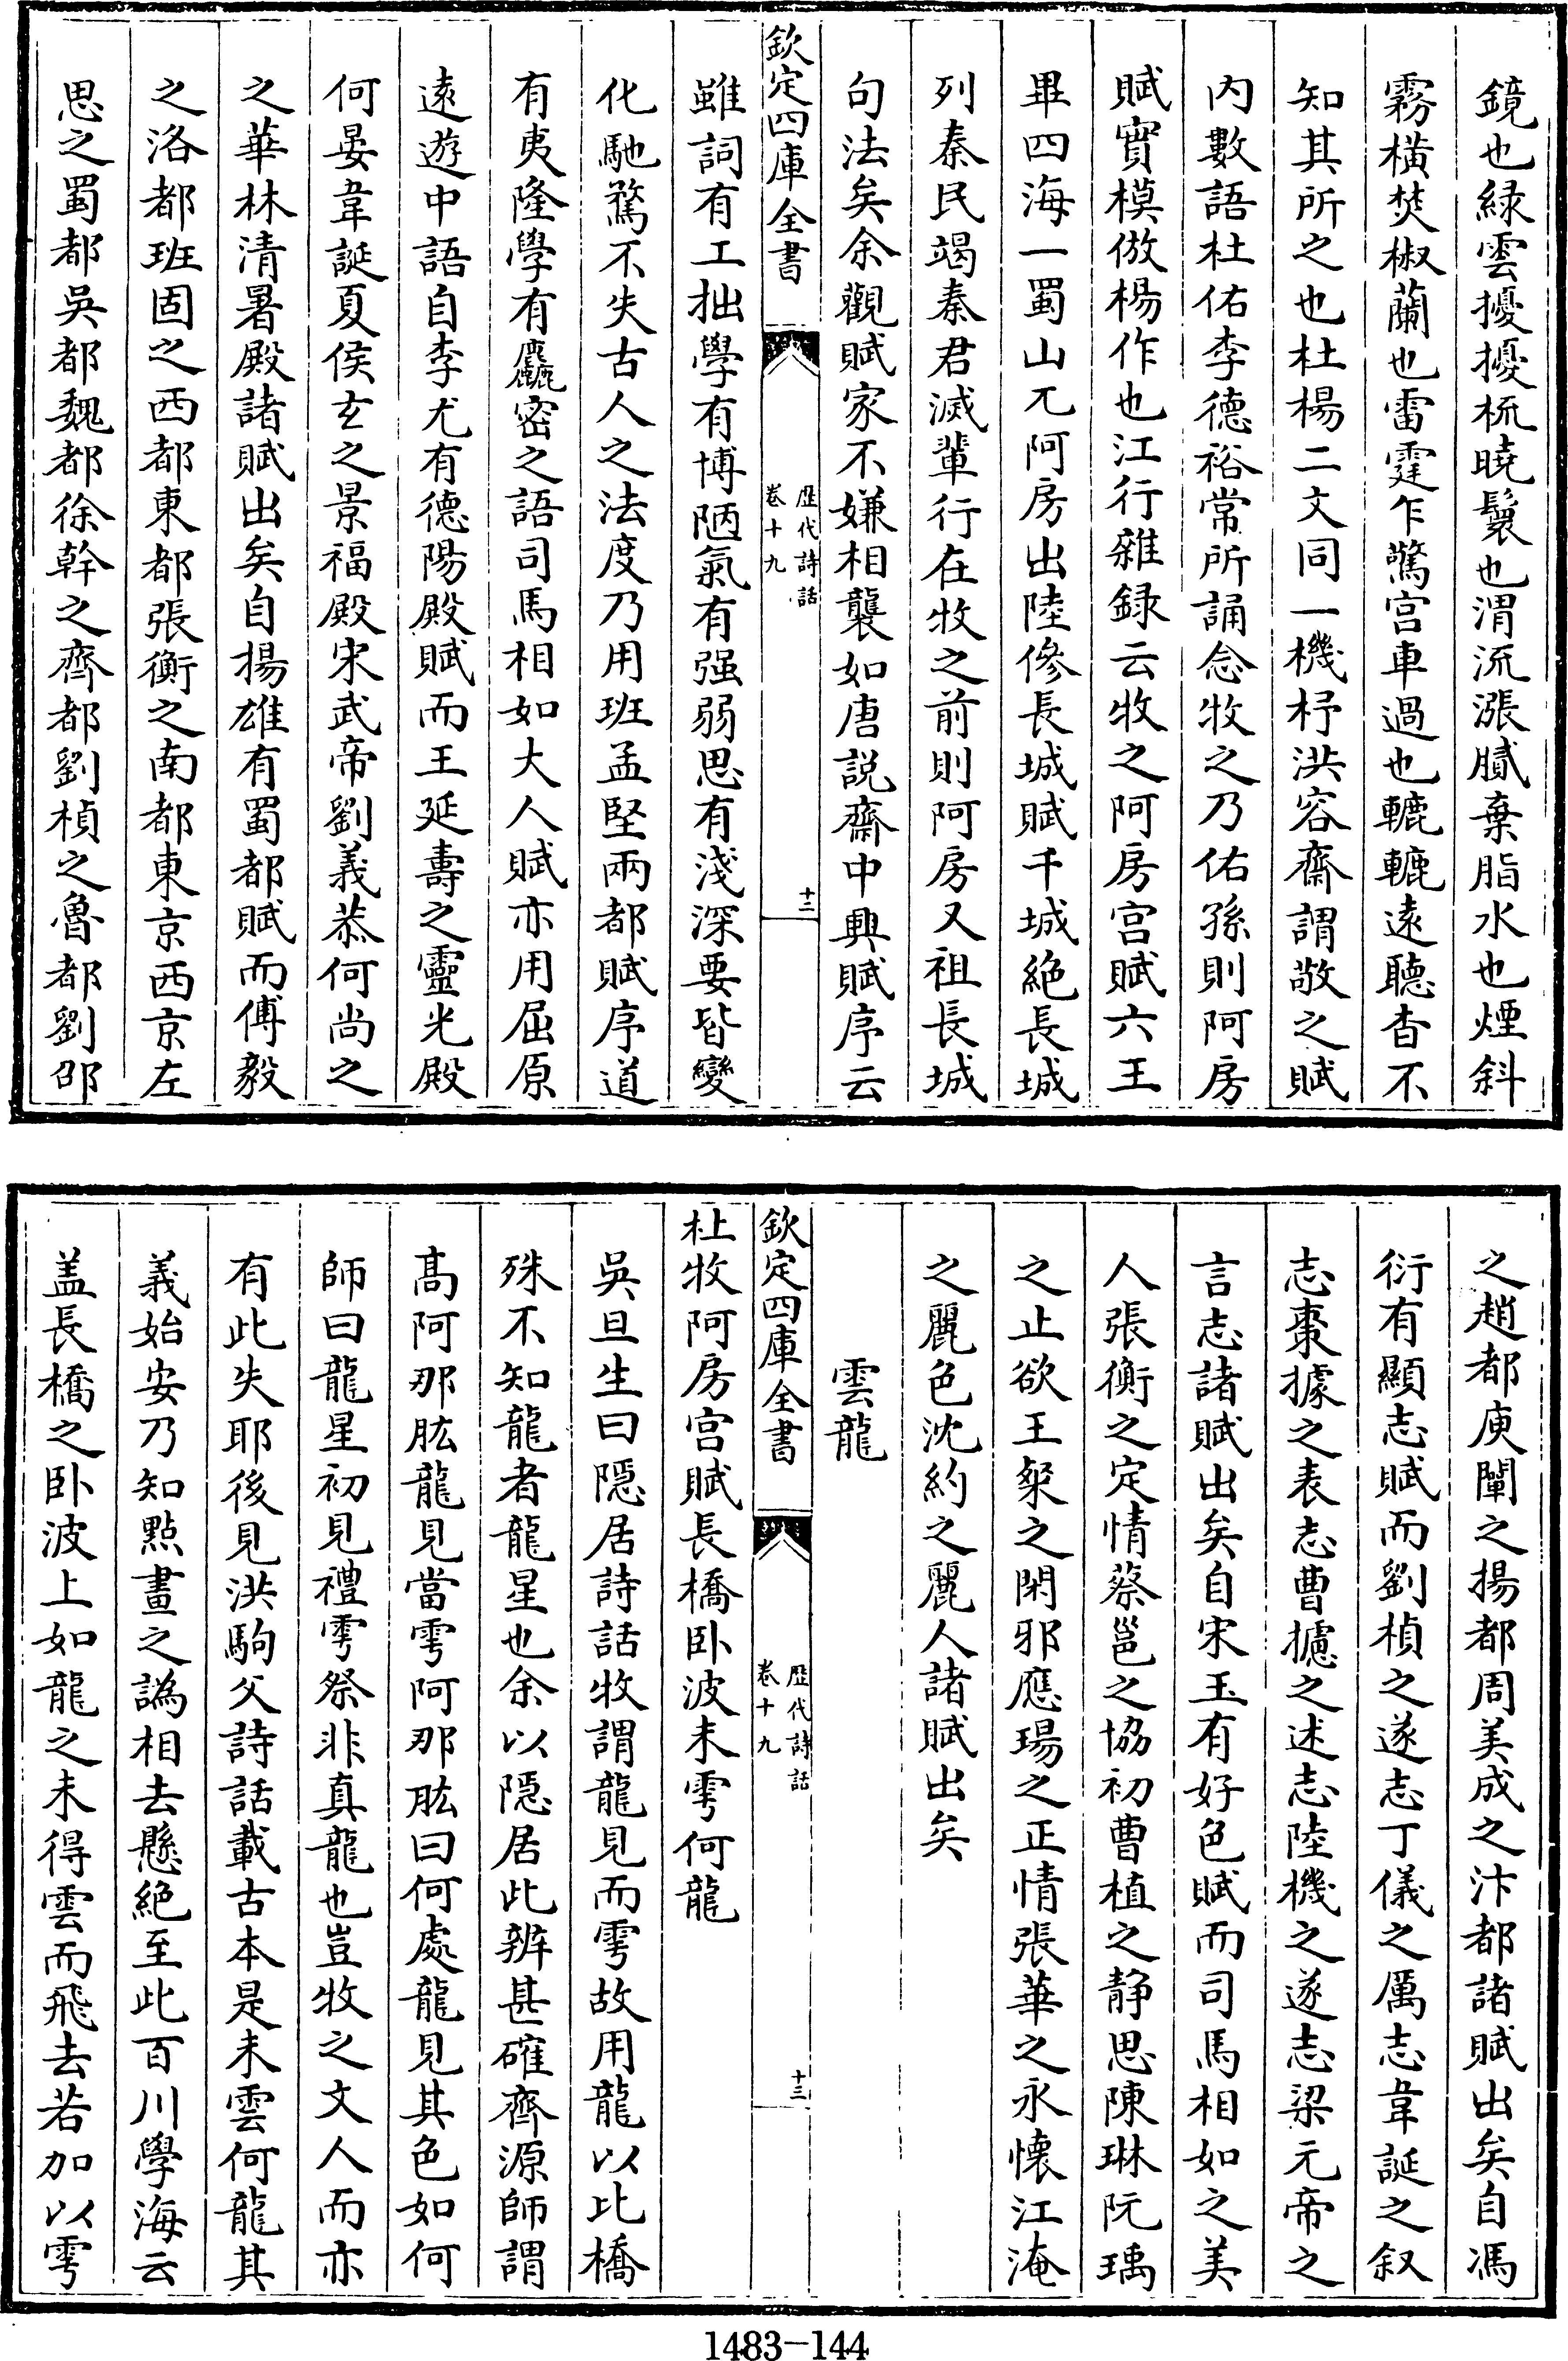 鏡也緑雲擾擾梳曉鬟也渭流漲膩棄脂水也煙斜
霧橫焚椒蘭也雷霆乍驚宫車過也轆轆遠聽杳不
知其所之也杜楊二文同一機杼洪容齋謂敬之賦
内數語杜佑李德裕常所誦念牧之乃佑孫則阿房
賦實模倣楊作也江行雜録云牧之阿房宫賦六王
畢四海一蜀山兀阿房出陸傪長城賦千城絶長城
列秦民竭秦君滅輩行在牧之前則阿房又祖長城
句法矣余觀賦家不嫌相襲如唐説齋中興賦序云
欽定四庫全書
歴代詩話
卷十九
十二
雖詞有工拙學有博陋氣有强弱思有淺深要皆變
化馳騖不失古人之法度乃用班孟堅兩都賦序道
有夷隆學有麤密之語司馬相如大人賦亦用屈原
遠遊中語自李尤有德陽殿賦而王延壽之靈光殿
何晏韋誕夏侯玄之景福殿宋武帝劉義恭何尚之
之華林清暑殿諸賦出矣自揚雄有蜀都賦而傅毅
之洛都班固之西都東都張衡之南都東京西京左
思之蜀都吳都魏都徐幹之齊都劉楨之魯都劉邵
之趙都庾闡之揚都周美成之汴都諸賦出矣自馮
衍有顯志賦而劉楨之遂志丁儀之厲志韋誕之叙
志棗據之表志曹攄之述志陸機之遂志梁元帝之
言志諸賦出矣自宋玉有好色賦而司馬相如之美
人張衡之定情蔡邕之協初曹植之静思陳琳阮瑀
之止欲王粲之閑邪應瑒之正情張華之永懷江淹
之麗色沈約之麗人諸賦出矣
雲龍
欽定四庫全書
歴代詩話
卷十九
十三
杜牧阿房宫賦長橋卧波未雩何龍
吳旦生曰隱居詩話牧謂龍見而雩故用龍以比橋
殊不知龍者龍星也余以隱居此辨甚確齊源師謂
髙阿那肱龍見當雩阿那肱曰何處龍見其色如何
師曰龍星初見禮雩祭非真龍也豈牧之文人而亦
有此失耶後見洪駒父詩話載古本是未雲何龍其
義始安乃知點畫之譌相去懸絶至此百川學海云
盖長橋之卧波上如龍之未得雲而飛去若加以雩
1483-144